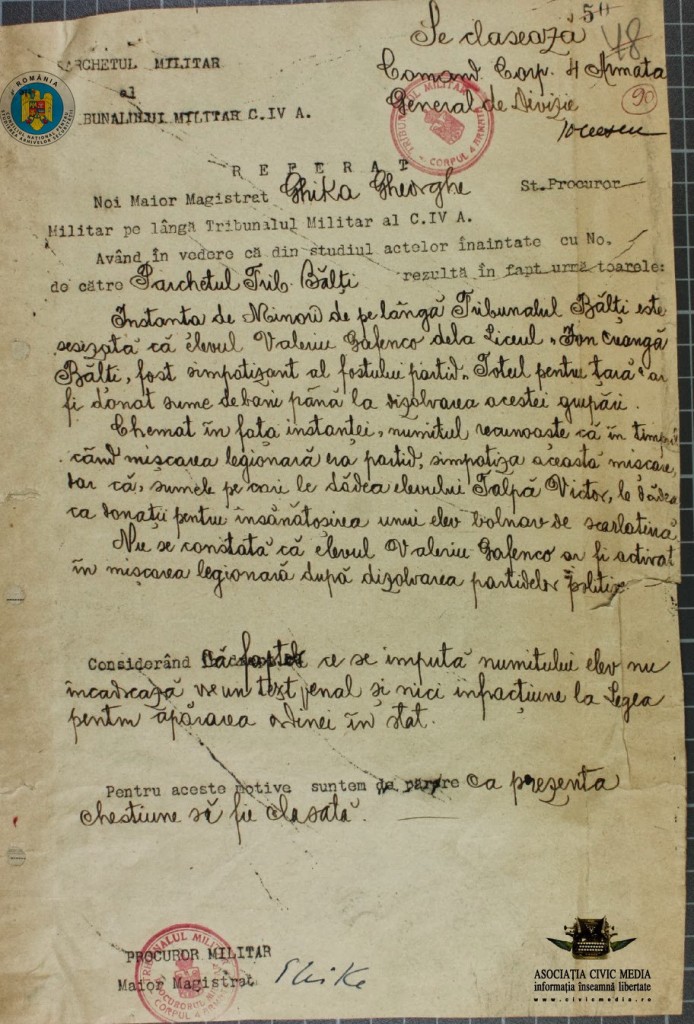 5
48
Se clasează
PARCHETUL MILITAR
Comand. Corp. 4 Armata
al
General de Divizie
90
TRIBUNALULUI MILITAR C.IV A.
Ionescu
ROMÂNIA
TRIBUNALUL MILITAR
CORPUL 4 ARMATA
REFERAT
Noi Maior Magistrat Ghika Gheorghe St.Procuror
Militar pe lângă Tribunalul Militar al C.IV A.
Având în vedere că din studiul actelor înaintate cu No.
de către Parchetul Trib. Bălți rezultă în fapt urmă toarele:
Instanta de Minori de pe lângă Tribunalul Bălți este
sesizată că elevul Valeriu Gafenco dela Liceul „Ion Creangă
Bălți, fost simpatizant al fostului partid „Totul pentru țară" ar
fi donat sume de bani până la dizolvarea acestei grupări.
Chemat în fața instanței, numitul recunoaste că în timpul
când mișcarea legionară era partid, simpatiza această mișcare,
dar că, sumele pe cari le dădea elevului Talpă Victor, le dădea
ca donații pentru însănătosirea unui elev bolnav de scarlatină.
Nu se constată că elevul Valeriu Gafenco ar fi activat
în mișcarea legionară după dizolvarea partidelor politice
Considerând că faptele ce se impută numitului elev nu
încadrează vre un text penal și nici infracțiune la Legea
pentru apărarea ordinei în stat.
Pentru aceste motive suntem de părere ca prezenta
chestiune să fie clasată.
TRIBUNALUL MILITAR
CORPUL 4 ARMATA
PROCUROR MILITAR
Maior Magistrat Ghika
ASOCIAȚIA CIVIC MEDIA
informația înseamnă libertate
www.civicmedia.ro